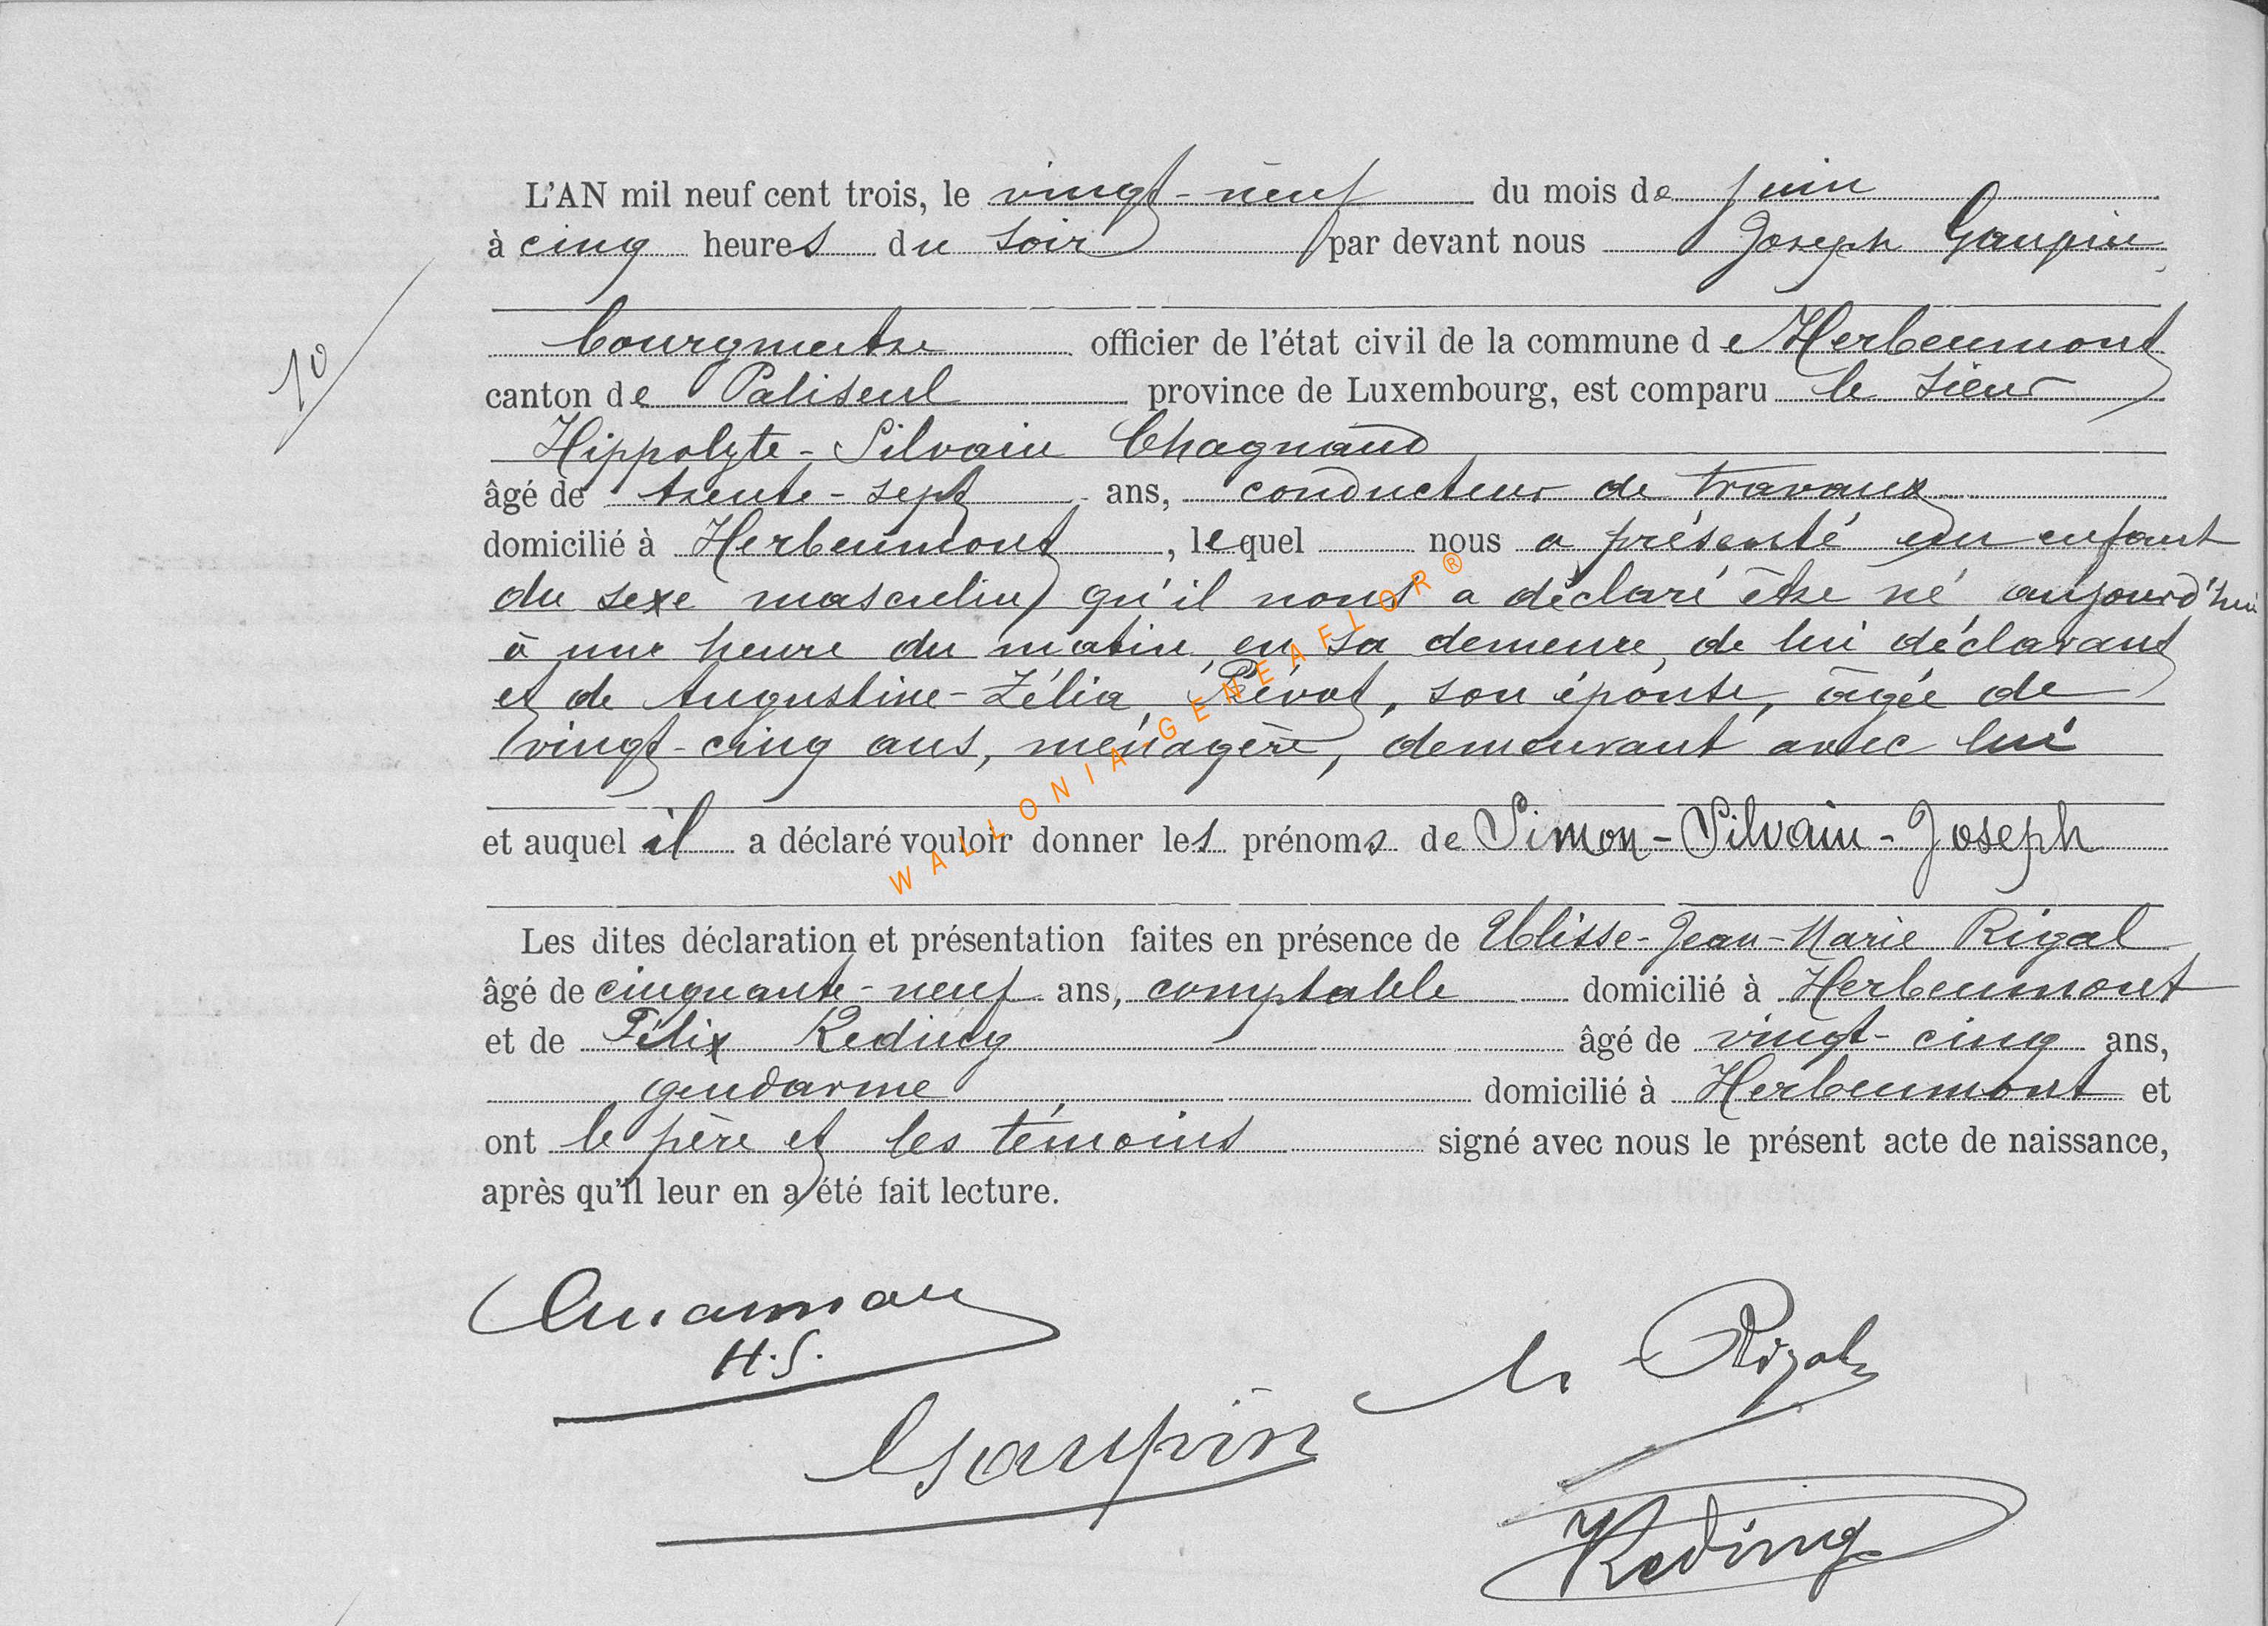 L'AN mil neuf cent trois, le vingt-neuf du mois de juin
à cinq heures du soir par devant nous Joseph Gaupin,
bourgmestre officier de l'état civil de la commune de Herbeumont
10
canton de Paliseul province de Luxembourg, est comparu le sieur
Hippolyte-Silvain Chagnaud
âgé de trente-sept ans, conducteur de travaux
domicilié à Herbeumont, lequel nous a présenté un enfant
du sexe masculin qu'il nous a déclaré être né aujourd'hui
à une heure du matin, en sa demeure, de lui déclarant
et de Augustine-Zélia, Pévot, son épouse, âgée de
vingt-cinq ans, ménagère, demeurant avec lui
et auquel il a déclaré vouloir donner les prénoms de Simon-Silvain-Joseph
Les dites déclaration et présentation faites en présence de Ulisse-Jean-Marie Rigal
âgé de cinquante-neuf ans, comptable domicilié à Herbeumont
et de Félix Reding âgé de vingt-cinq ans,
gendarme domicilié à Herbeumont et
ont le père et les témoins signé avec nous le présent acte de naissance,
après qu'il leur en a été fait lecture.
H.S.
Rigal
Gaupin
Reding
WALLONIA-GENEAFLOR®